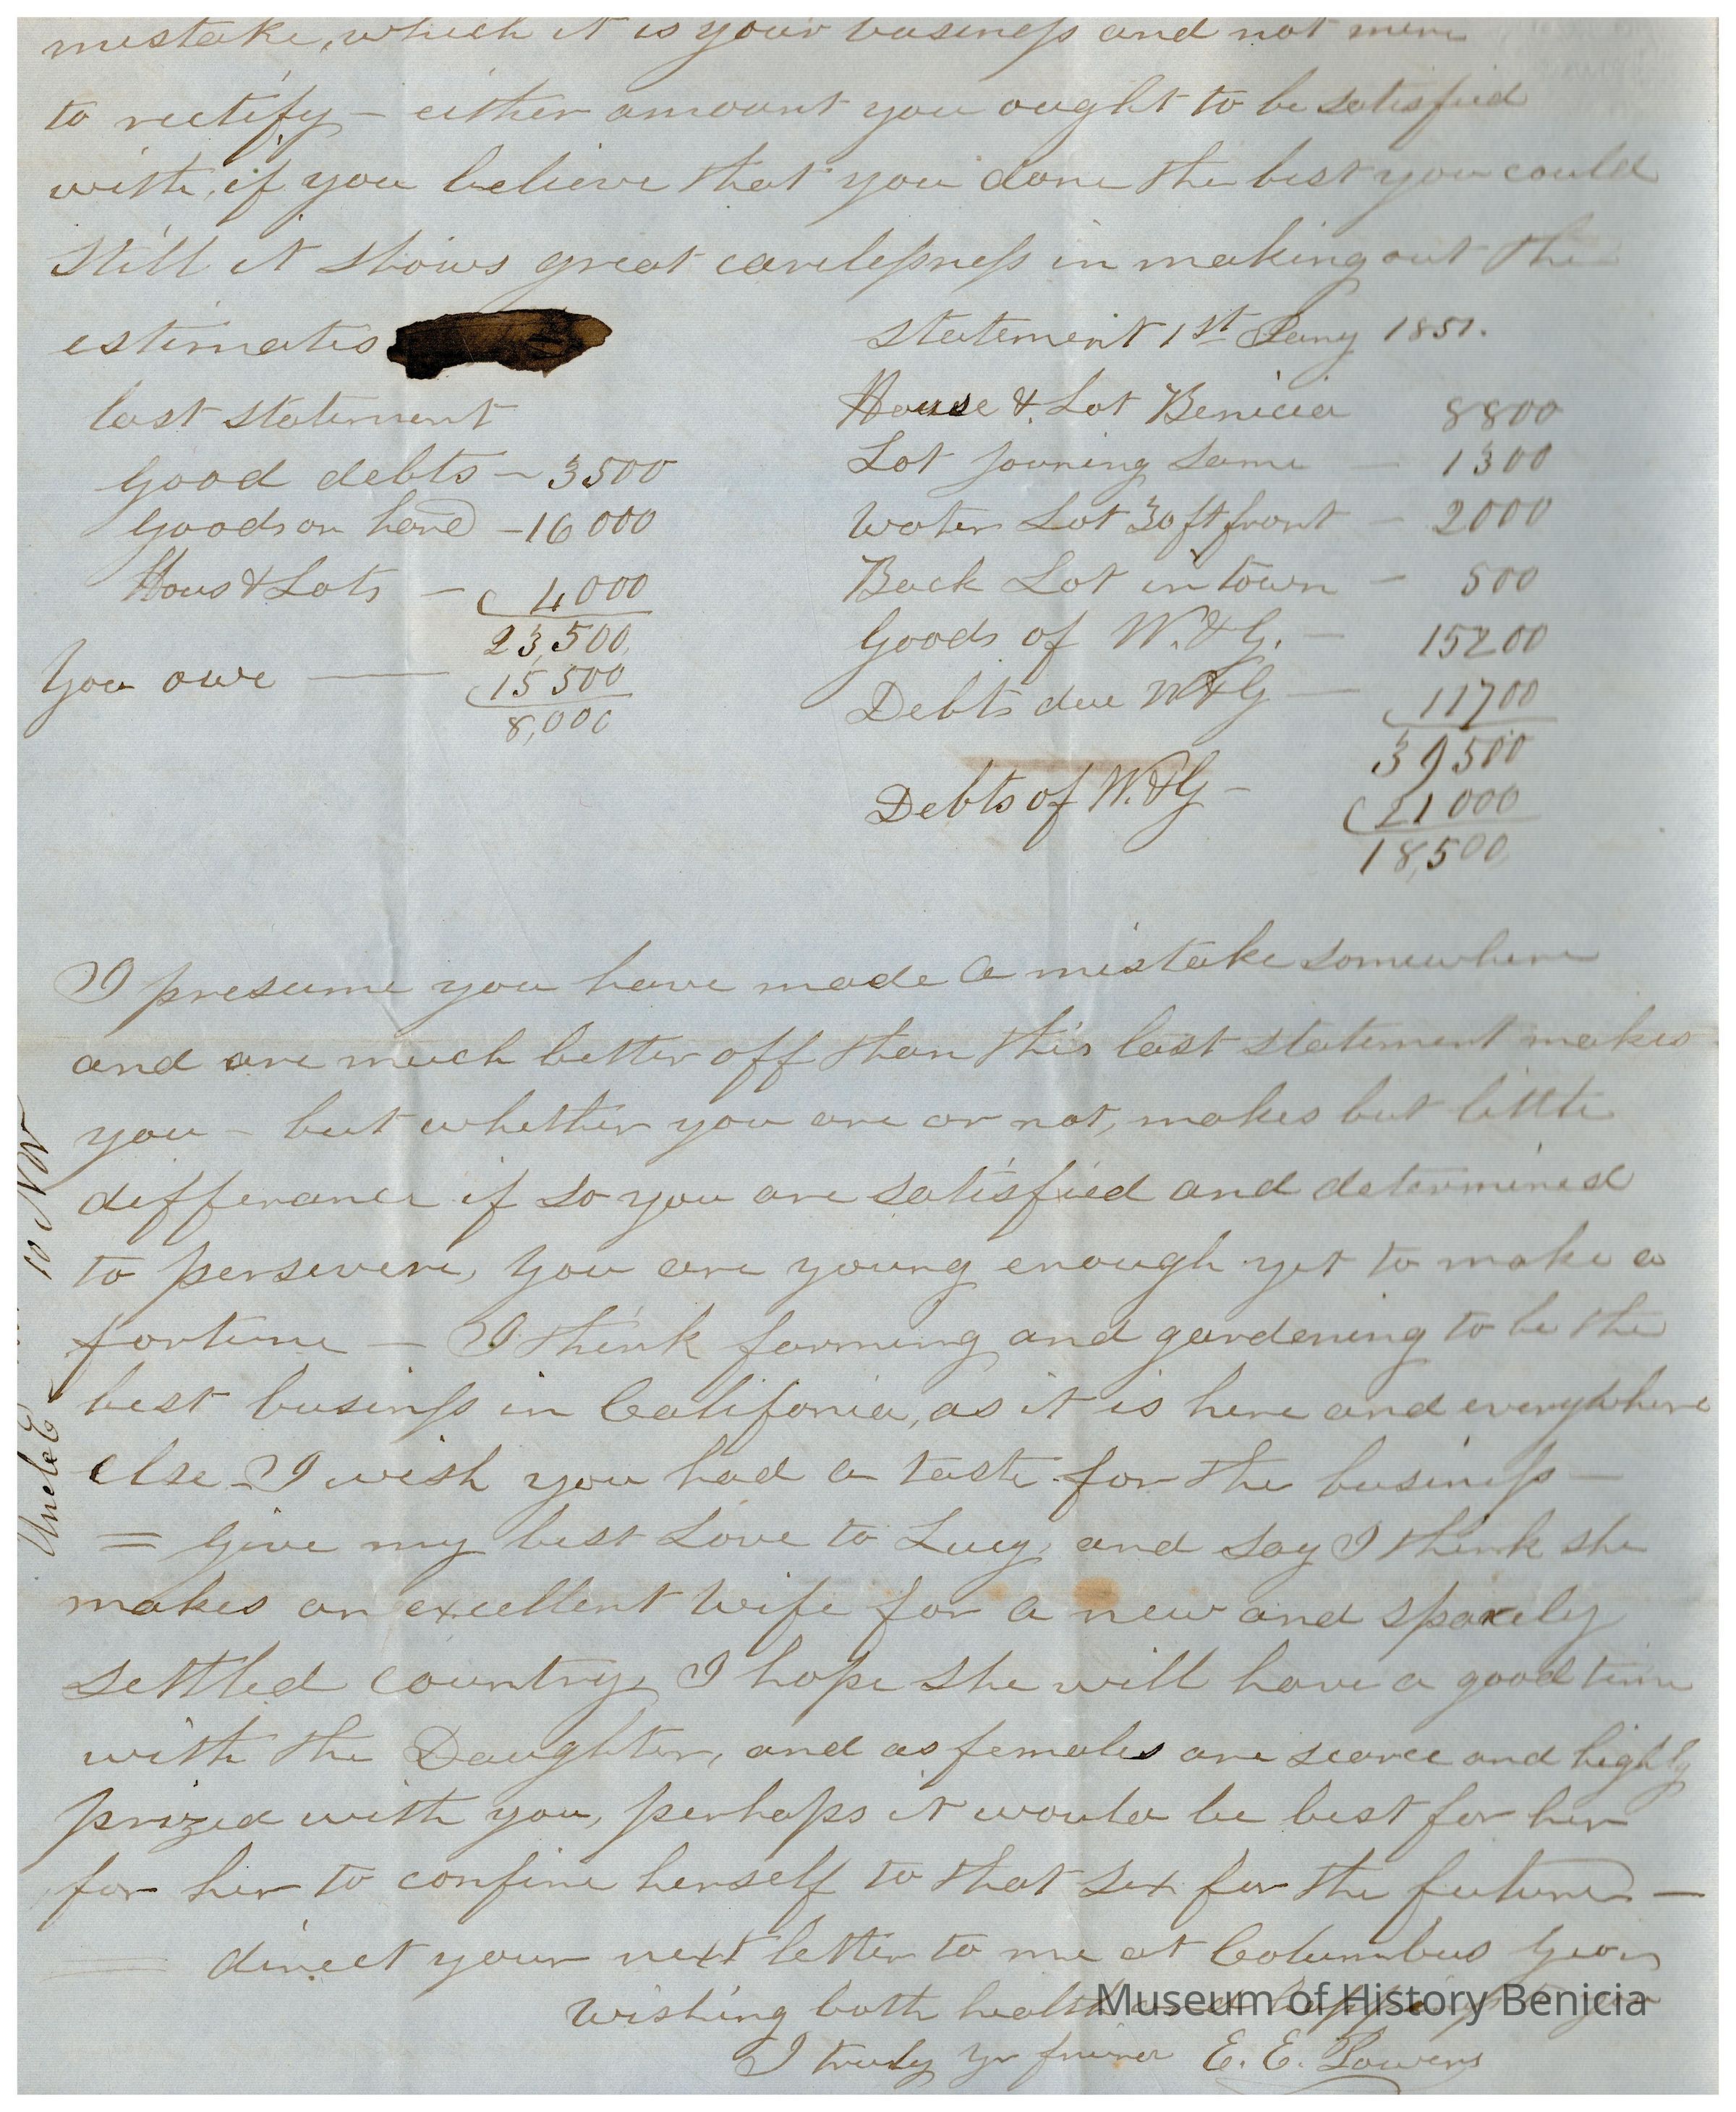 mistake, which it is your business and not mine
to rectify – either amount you ought to be satisfied
with, if you believe that you done the best you could
Still it shows great carelessness in making out the
estimates
last statement
Good debts – 3500
Goods on hand – 16 000
Hous & Lots – 4 000
23,500
You owe — 15 500
8,000
Statement 1st Jany 1851.
House & Lot Benicia 8800
Lot joining same – 1300
Water Lot 30 ft front – 2000
Back Lot in town – 500
Goods of W. & G. – 15200
Debts due W & G — 11700
39500
Debts of W. & G – 21 000
18,500
I presume you have made a mistake somewhere
and are much better off than this last statement makes
you – but whether you are or not, makes but little
differance if so you are satisfied and determined
to persevere, You are young enough yet to make a
fortune — I think farming and gardening to be the
best business in California, as it is here and everywhere
else – I wish you had a taste for the business —
= Give my best Love to Lucy, and say I think she
makes an excellent wife for a new and sparely
settled country, I hope she will have a good time
with the Daughter, and as females are scarce and highly
prized with you, perhaps it would be best for her
for her to confine herself to that sex for the future —
= direct your next letter to me at Columbus Geor
Wishing both health and happiness
I truly yr friend E. E. Powers
Uncle E
10 Nov
Museum of History Benicia